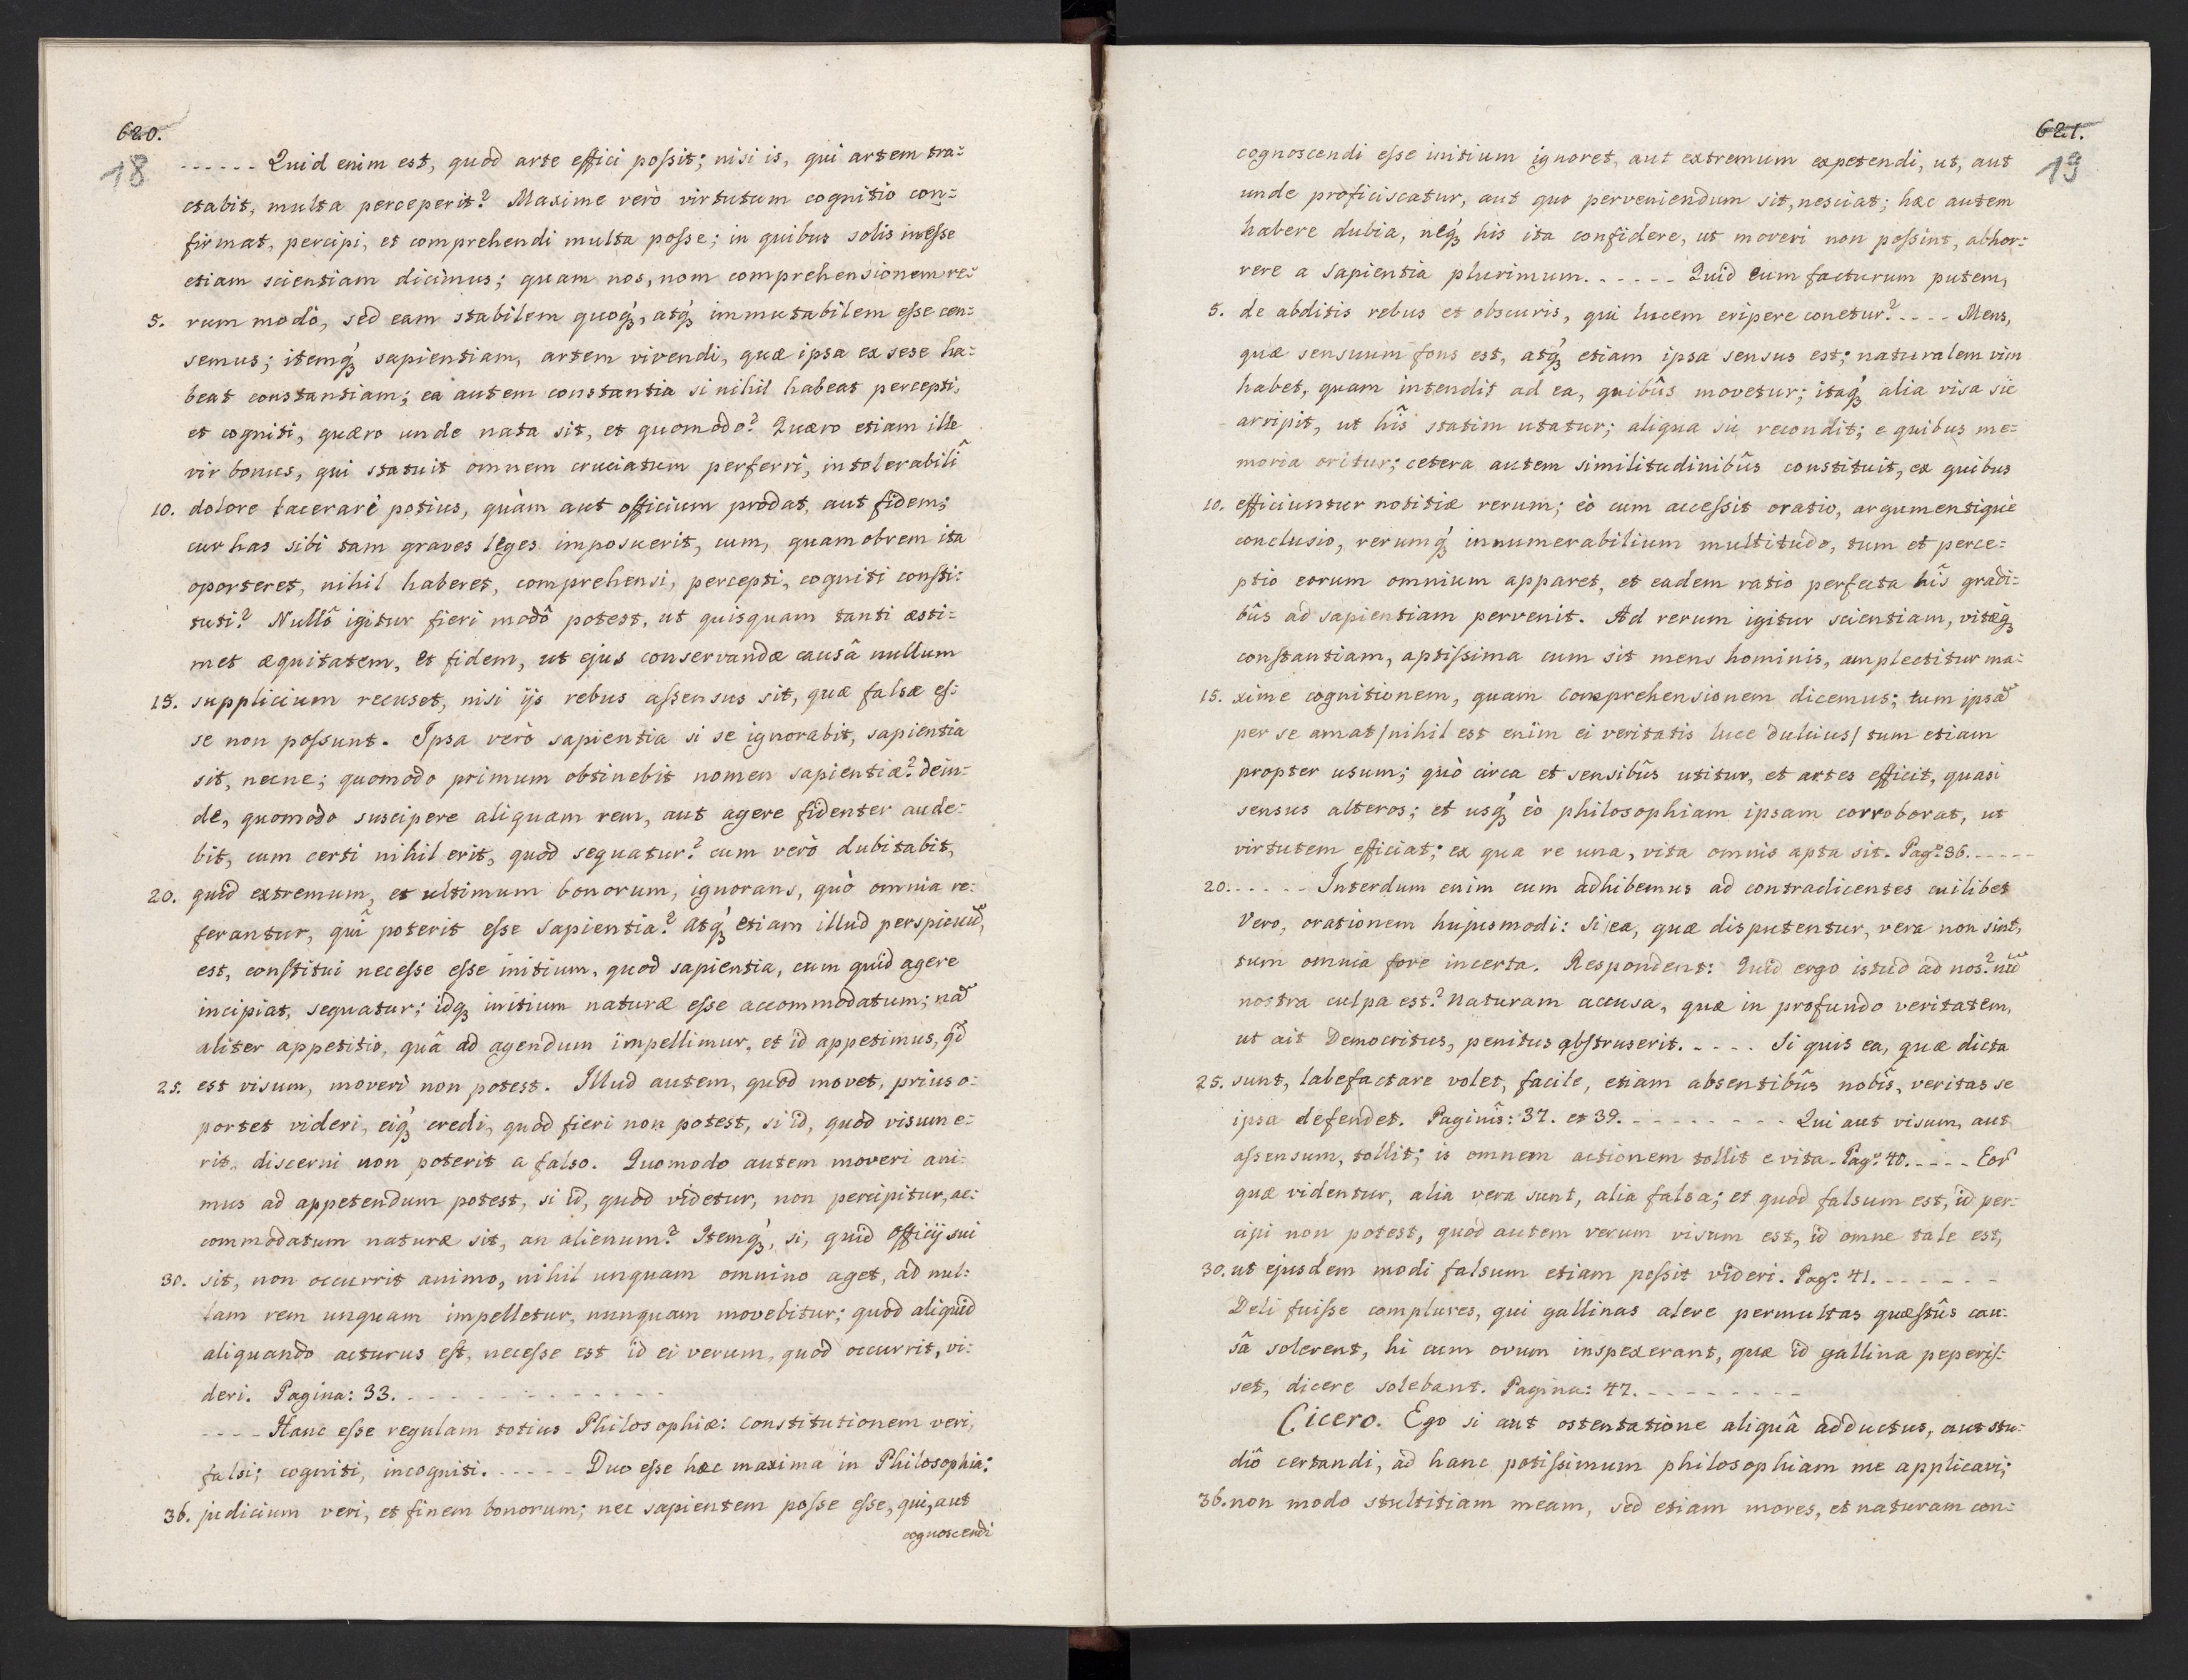 620.
18
- - - - - - Quid enim est, quod arte effici poſsit; nisi is, qui artem tra=
ctabit, multa perceperit? Maxime verò virtutum cognitio con=
firmat, percipi, et comprehendi multa poſse; in quibus solis ineſse
etiam scientiam dicimus; quam nos, nom comprehensionem re=
5. rum modò, sed eam stabilem quoq́ꝫ, atq́ꝫ immutabilem eſse cen=
semus; itemq́ꝫ sapientiam, artem vivendi, quæ ipsa ex sese ha=
beat constantiam; ea autem constantia si nihil habeat percepti,
et cogniti, quæro unde nata sit, et quomodo? Quæro etiam ille
vir bonus, qui statuit omnem cruciatum perferri, intolerabili
10. dolore lacerari potius, quàm aut officium prodat, aut fidem;
cur has sibi tam graves leges imposuerit, cum, quamobrem ita
oporteret, nihil haberet, comprehensi, percepti, cogniti conſti=
tuti? Nullô igitur fieri modô potest, ut quisquam tanti æsti=
met æquitatem, et fidem, ut ejus conservandæ causâ nullum
15. supplicium recuset, nisi ijs rebus aſsensus sit, quæ falsæ eſ=
se non poſsunt. Ipsa verò sapientia si se ignorabit, sapientia
sit, necne; quomodo primum obtinebit nomen sapientiæ? dein=
de, quomodo suscipere aliquam rem, aut agere fidenter aude=
bit, cum certi nihil erit, quod sequatur? cum verò dubitabit,
20. quid extremum, et ultimum bonorum, ignorans, quò omnia re=
ferantur, quî poterit eſse Sapientia? Atq́ꝫ etiam illud perspicuū
est, conſtitui neceſse eſse initium, quod sapientia, cum quid agere
incipiat, sequatur; idqꝫ initium naturæ eſse accommodatum; nā
aliter appetitio, quâ ad agendum impellimur, et id appetimus, qd̄
25. est visum, moveri non potest. Illud autem, quod movet, prius o=
portet videri, eiq́ꝫ credi, quod fieri non potest, si id, quod visum e=
rit, discerni non poterit a falso. Quomodo autem moveri ani=
mus ad appetendum potest, si id, quod videtur, non percipitur, ac=
commodatum naturæ sit, an alienum? Itemq́ꝫ, si, quid officij sui
30. sit, non occurrit animo, nihil unquam omnino aget, ad nul=
lam rem unquam impelletur, nunquam movebitur; quod aliquid
aliquando acturus eſt, neceſse est id ei verum, quod occurrit, vi=
deri. Pagina: 33. - - - - - - - - - - - - -
- - - - Hanc eſse regulam totius Philosophiæ: constitutionem veri,
falsi; cogniti, incogniti. - - - - - Duo eſse hæc maxima in Philosophia:
36. judicium veri, et finem bonorum; nec sapientem poſse eſse, qui, aut
cognoscendi
621.
19
cognoscendi eſse initium ignoret, aut extremum expetendi, ut, aut
unde proficiscatur, aut quo perveniendum sit, nesciat; hæc autem
habere dubia, neq́ꝫ his ita confidere, ut moveri non poſsint, abhor=
rere a Sapientia plurimum. - - - - - - Quid eum facturum putem,
5. de abditis rebus et obscuris, qui lucem eripere conetur? - - - - Mens,
quæ sensuum fons est, atq́ꝫ etiam ipsa sensus est; naturalem vim
habet, quam intendit ad ea, quibûs movetur; itaq́ꝫ alia visa sic
arripit, ut hîs statim utatur; aliqua sic recondit; e quibus me=
moria oritur; cetera autem similitudinibûs constituit, ex quibus
10. efficiuntur notitiæ rerum; eò cum acceſsit oratio, argumentiquè
conclusio, rerumq́ꝫ innumerabilium multitudo, tum et perce=
ptio eorum omnium apparet, et eadem ratio perfecta hîs gradi=
bûs ad sapientiam pervenit. Ad rerum igitur scientiam, vitæqꝫ
conſtantiam, aptiſsima cum sit mens hominis, amplectitur ma=
15. xime cognitionem, quam comprehensionem dicemus; tum ipsā
per se amat/nihil est enim ei veritatis luce dulcius/ tum etiam
propter usum; quò circa et sensibûs utitur, et artes efficit, quasi
sensus alteros; et usq́ꝫ eò philosophiam ipsam corroborat, ut
virtutem efficiat; ex qua re una, vita omnis apta sit. Pagᵃ: 36. - - - - -
20. - - - - - Interdum enim cum adhibemus ad contradicentes cuilibet
Vero, orationem hujusmodi: Si ea, quæ disputentur, vera non sint,
tum omnia fore incerta. Respondent: Quid ergo istud ad nos? nū
nostra culpa est? Naturam accusa, quæ in profundo veritatem,
ut ait Democritus, penitus abſtruserit. - - - - - Si quis ea, quæ dicta
25. sunt, labefactare volet, facile, etiam absentibûs nobîs, veritas se
ipsa defendet. Paginîs: 37. et 39. - - - - - - - - Qui aut visum, aut
aſsensum, tollit; is omnem actionem tollit e vita. Pagᵃ: 40. - - - - - Eor̄
quæ videntur, alia vera sunt, alia falsa; et quod falsum est, id per=
cipi non potest, quod autem verum visum est, id omne tale est,
30. ut ejusdem modi falsum etiam poſsit videri. Pagᵃ: 41. - - - - - -
Deli fuiſse complures, qui gallinas alere permultas quæſtûs cau=
sâ solerent, hi cum ovum inspexerant, quæ id gallina peperiſ=
set, dicere solebant. Pagina: 47. - - - - - - - -
Cicero. Ego si aut ostentatione aliquâ adductus, aut stu=
diô certandi, ad hanc potiſsimum philosophiam me applicavi;
36. non modo stultitiam meam, sed etiam mores, et naturam con=